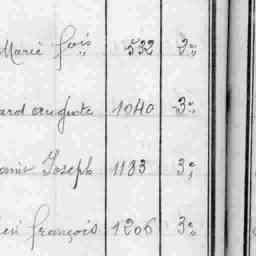 Marie fois 532 3"
ard auguste 1040 3"
Joseph 1133 3"
françois 1206 3"